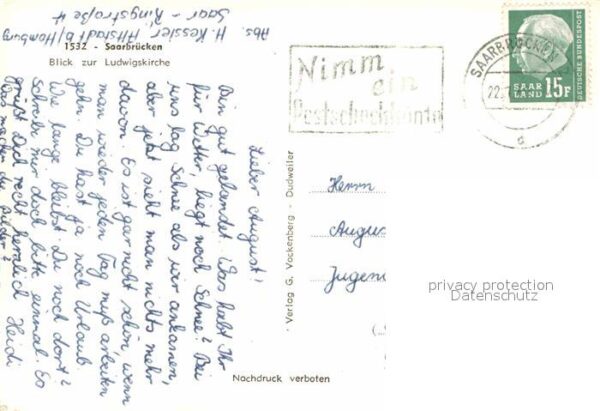 Abs. H. Kessler Altstadt b/Homburg
Saar - Ringstraße 4
1532 - Saarbrücken
Blick zur Ludwigskirche
Lieber August!
Bin gut gelandet. Was habt Ihr
für Wetter, liegt noch Schnee? Bei
uns lag Schnee als wir ankamen,
aber jetzt sieht man nichts mehr
davon. Es ist gar nicht schön wenn
man wieder jeden Tag muß arbeiten
gehn. Du hast ja noch Urlaub.
Wie lange bleibst Du noch dort?
Schreibe mir doch bitte einmal. Es
grüßt Dich recht herzlich Heidi
Was machen die Bilder?
Verlag G. Vockenberg - Dudweiler
Nachdruck verboten
Nimm
ein
Postscheckkonto
SAARBRÜCKEN
22.
c
DEUTSCHE BUNDESPOST
SAAR
LAND
15F
Herrn
Augus
Jugen
privacy protection
Datenschutz